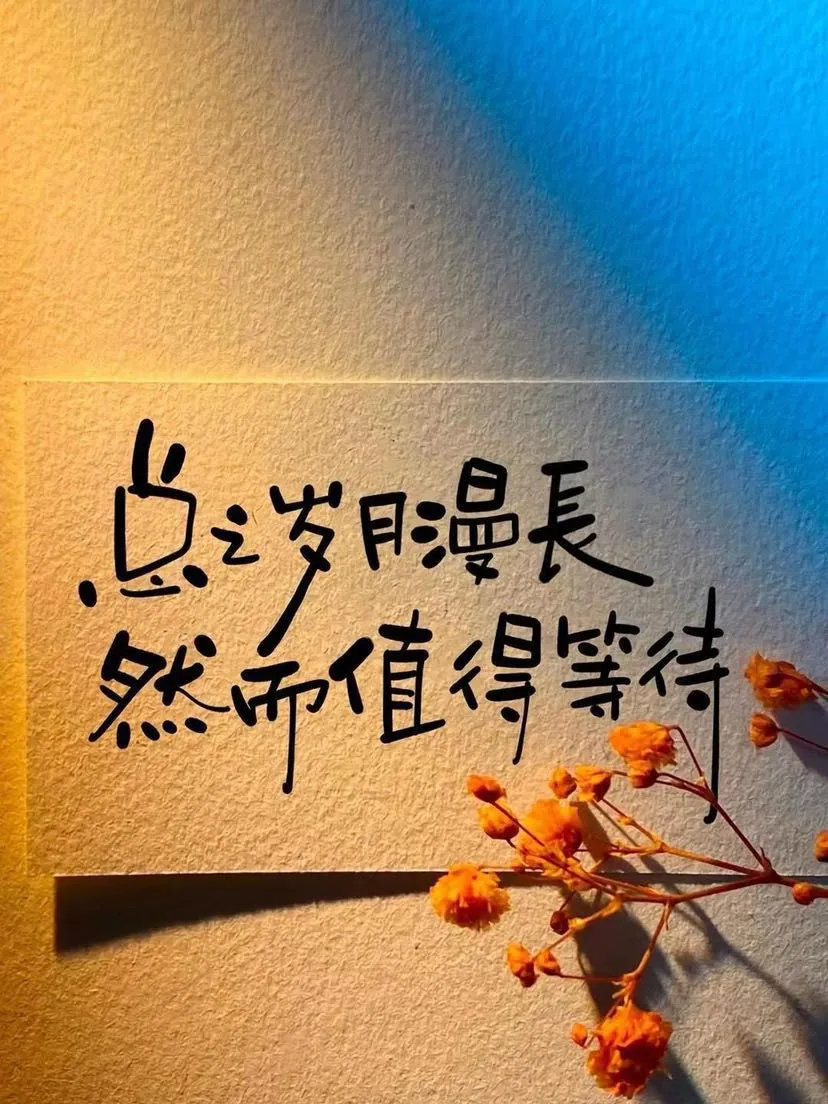 总之岁月漫長
然而值得等待